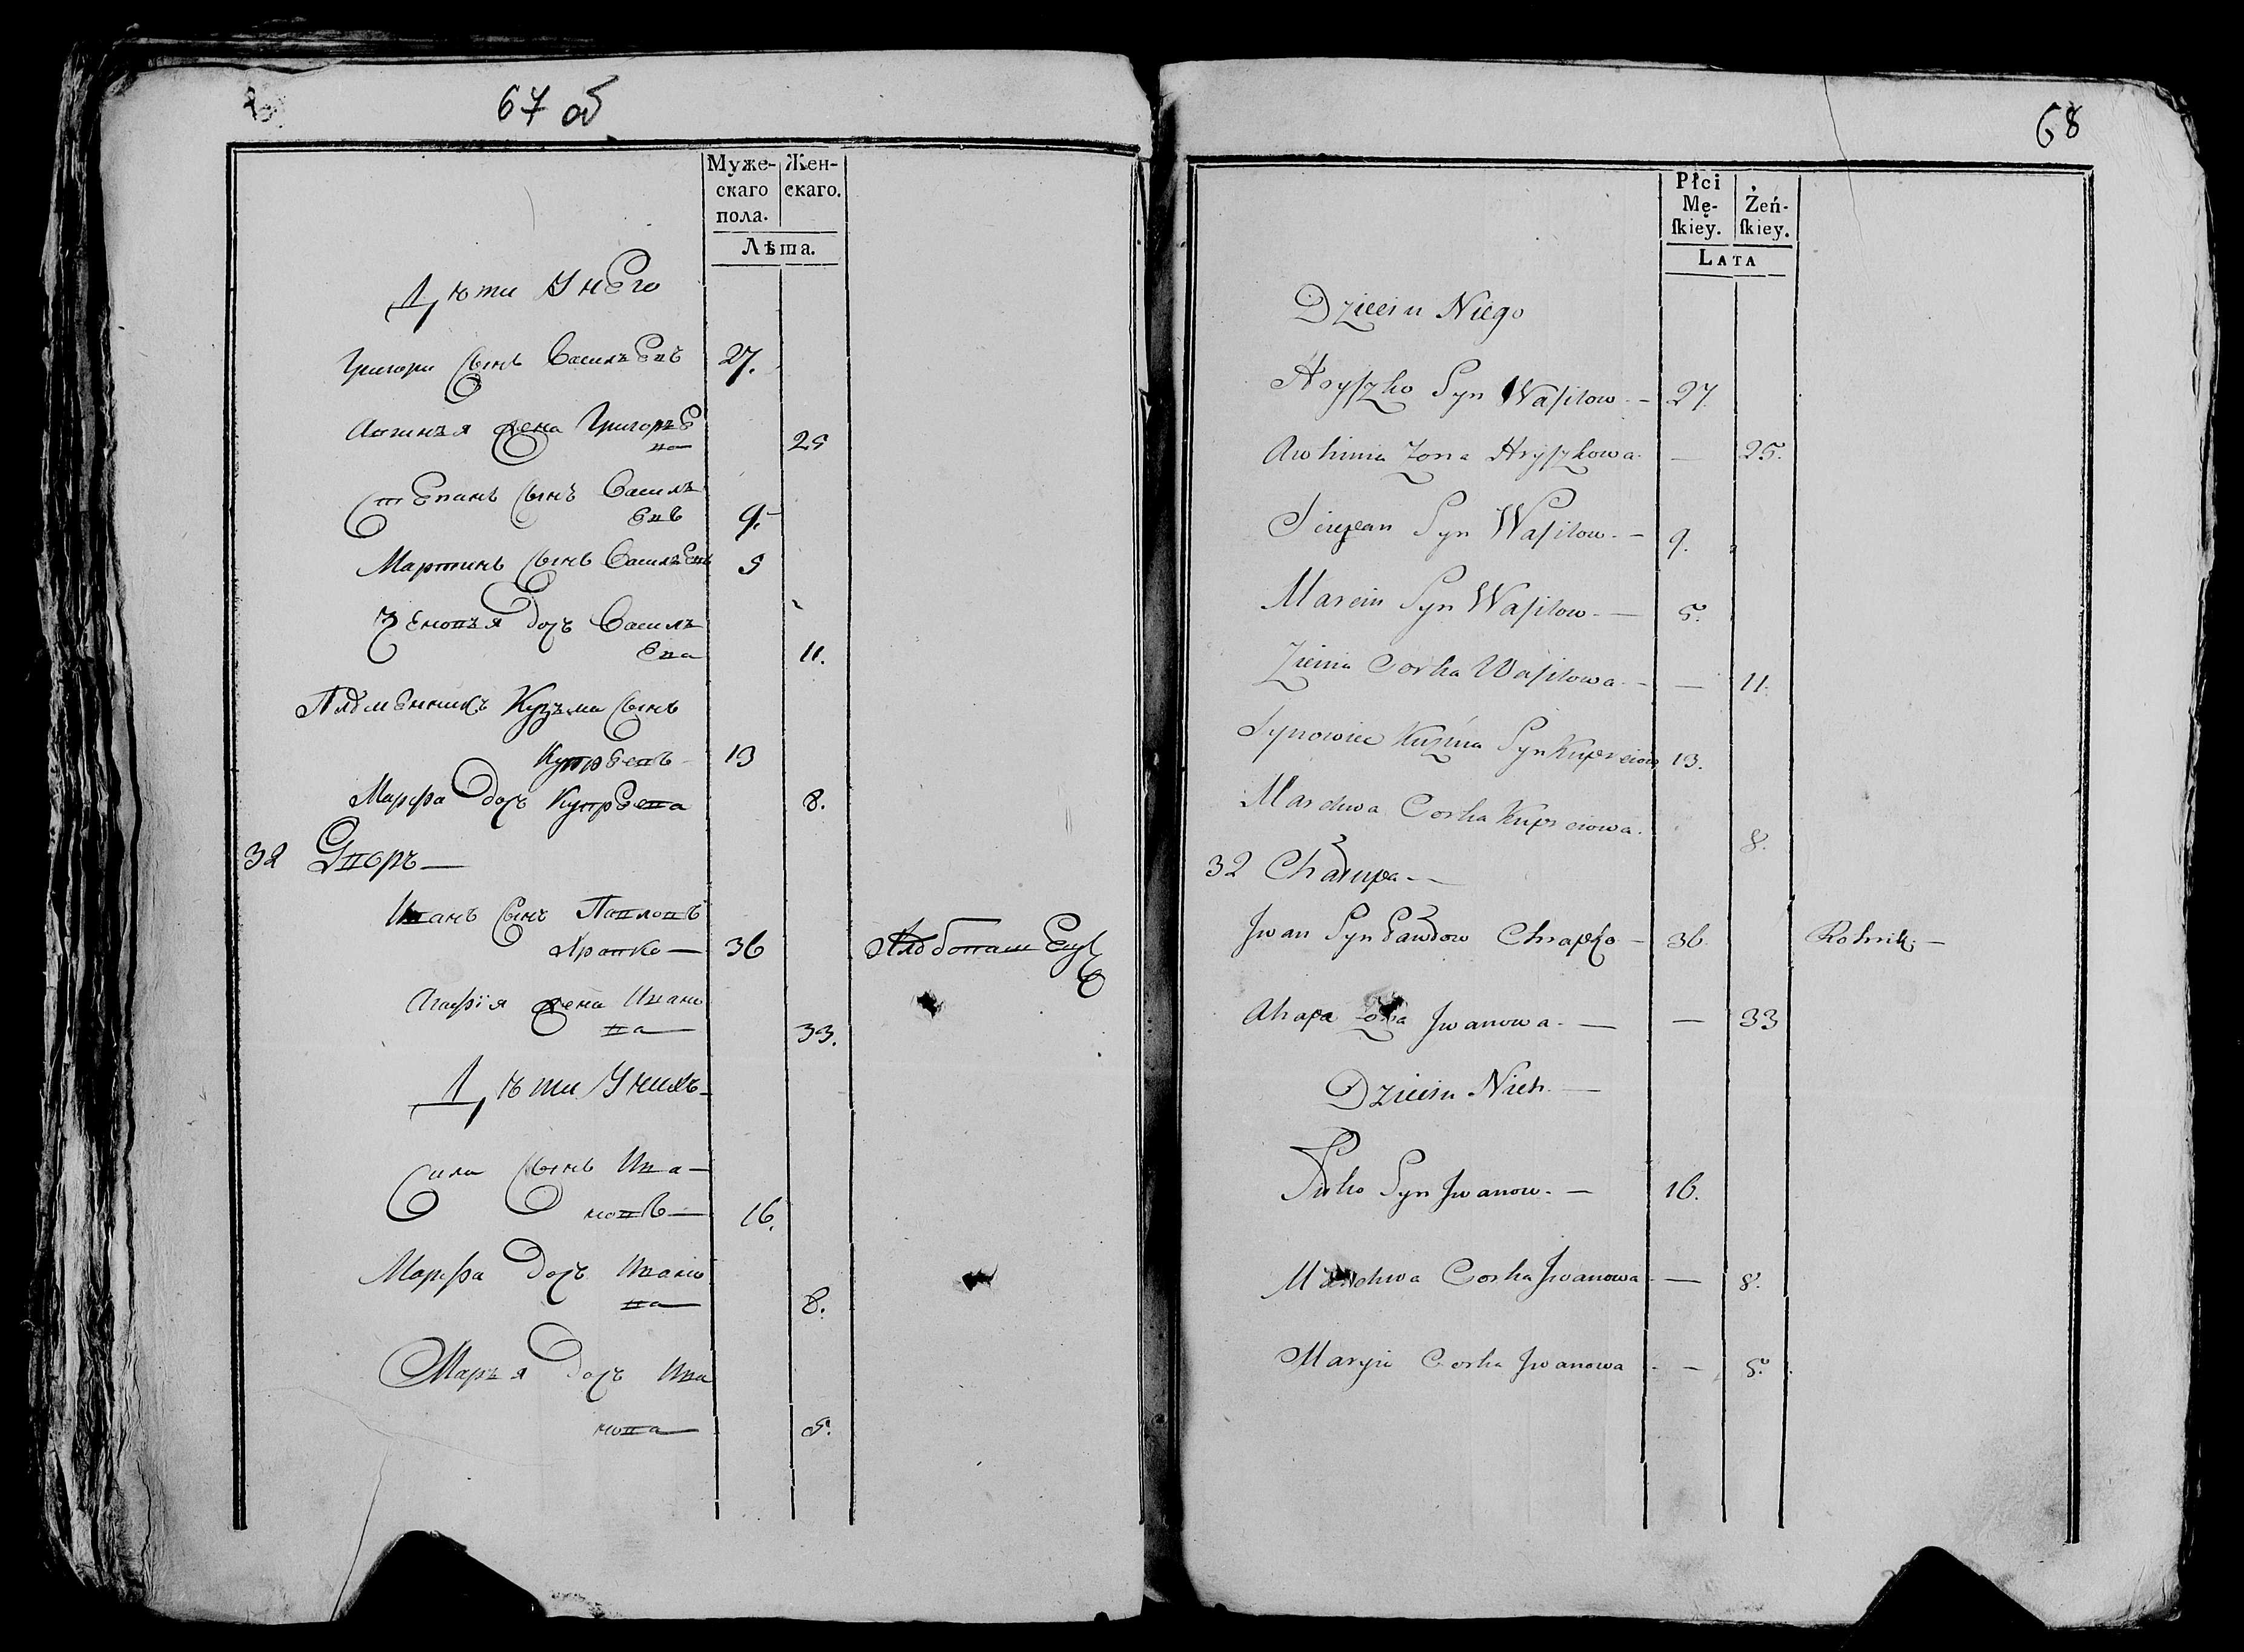 67 об
Муже-
скаго
пола.
Жен-
скаго.
Лѣта.
Дѣти У него
Григори Сынъ Васильевъ 27.
жена Григорье
ва 25
Степанъ Сынъ Василь
евъ 9.
Мартинъ Сынъ Васильевъ 5
Зеновья дочь Василь
ева 11.
Племенникъ Кузьма Сынъ
Купреевъ 13
Марфа дочь Купреева 8.
32 Дворъ —
Иванъ Сынъ Павловъ
Храпко — 36 Хлебопашецъ
Агафія жена Ивано
ва — 33.
Дѣти У нихъ —
Сила Сынъ Ива-
новъ — 16.
Марфа дочь Ивано
ва — 8.
Марья дочь Ива
нова — 5.
68
Płci
Mę-
skiey.
Żeń-
skiey.
LATA
Dzieci u Niego
Hryszko Syn Wasilow. — 27
Awhinia Zona Hryszkowa. — 25.
Sciepan Syn Wasilow. — 9.
Marcin Syn Wasilow. — 5.
Zienia Corka Wasilowa. — — 11.
Synowiec Kuźma Syn Kupreiow 13.
Marchwa Corka Kupreiowa. 8.
32 Chałupa —
Jwan Syn Pawłow Chrapko — 36. Rolnik. —
Ahapa Zona Jwanowa. — — 33
Dzieci u Nich. —
Syn Jwanow. — 16.
Marchwa Corka Jwanowa — 8.
Maryia Corka Jwanowa — 5.